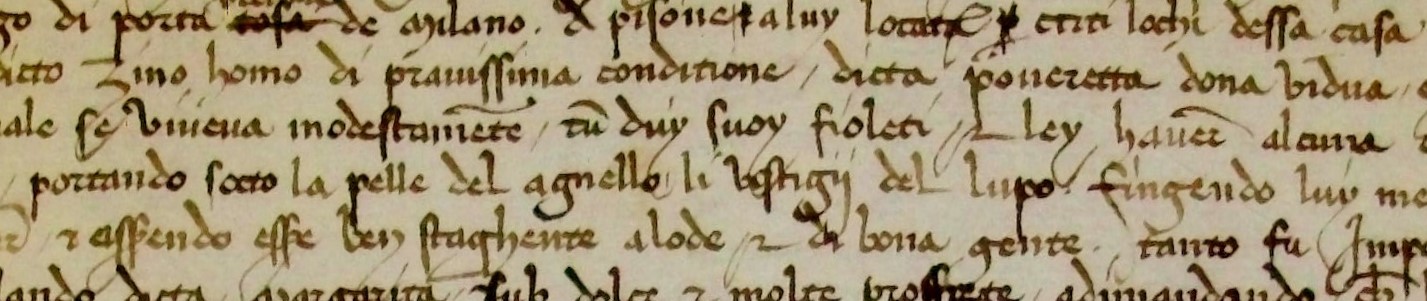 go di porta tosa de Milano. A pisone a luy locata p certi lochi dessa casa
dicto Zino homo di prauissima conditione / dicta poueretta dona vidua
uale se viueua modestamēte / cū duy suoy fioleti / ley hauer̄ alcuna
portando socto la pelle del agnello li vestigij del lupo. fingendo luy
⁊ essendo esse ben staghente a lode / ⁊ di bona gente. tanto fu Imp
lando dicta Margarita sub dolce ⁊ molte adimandando